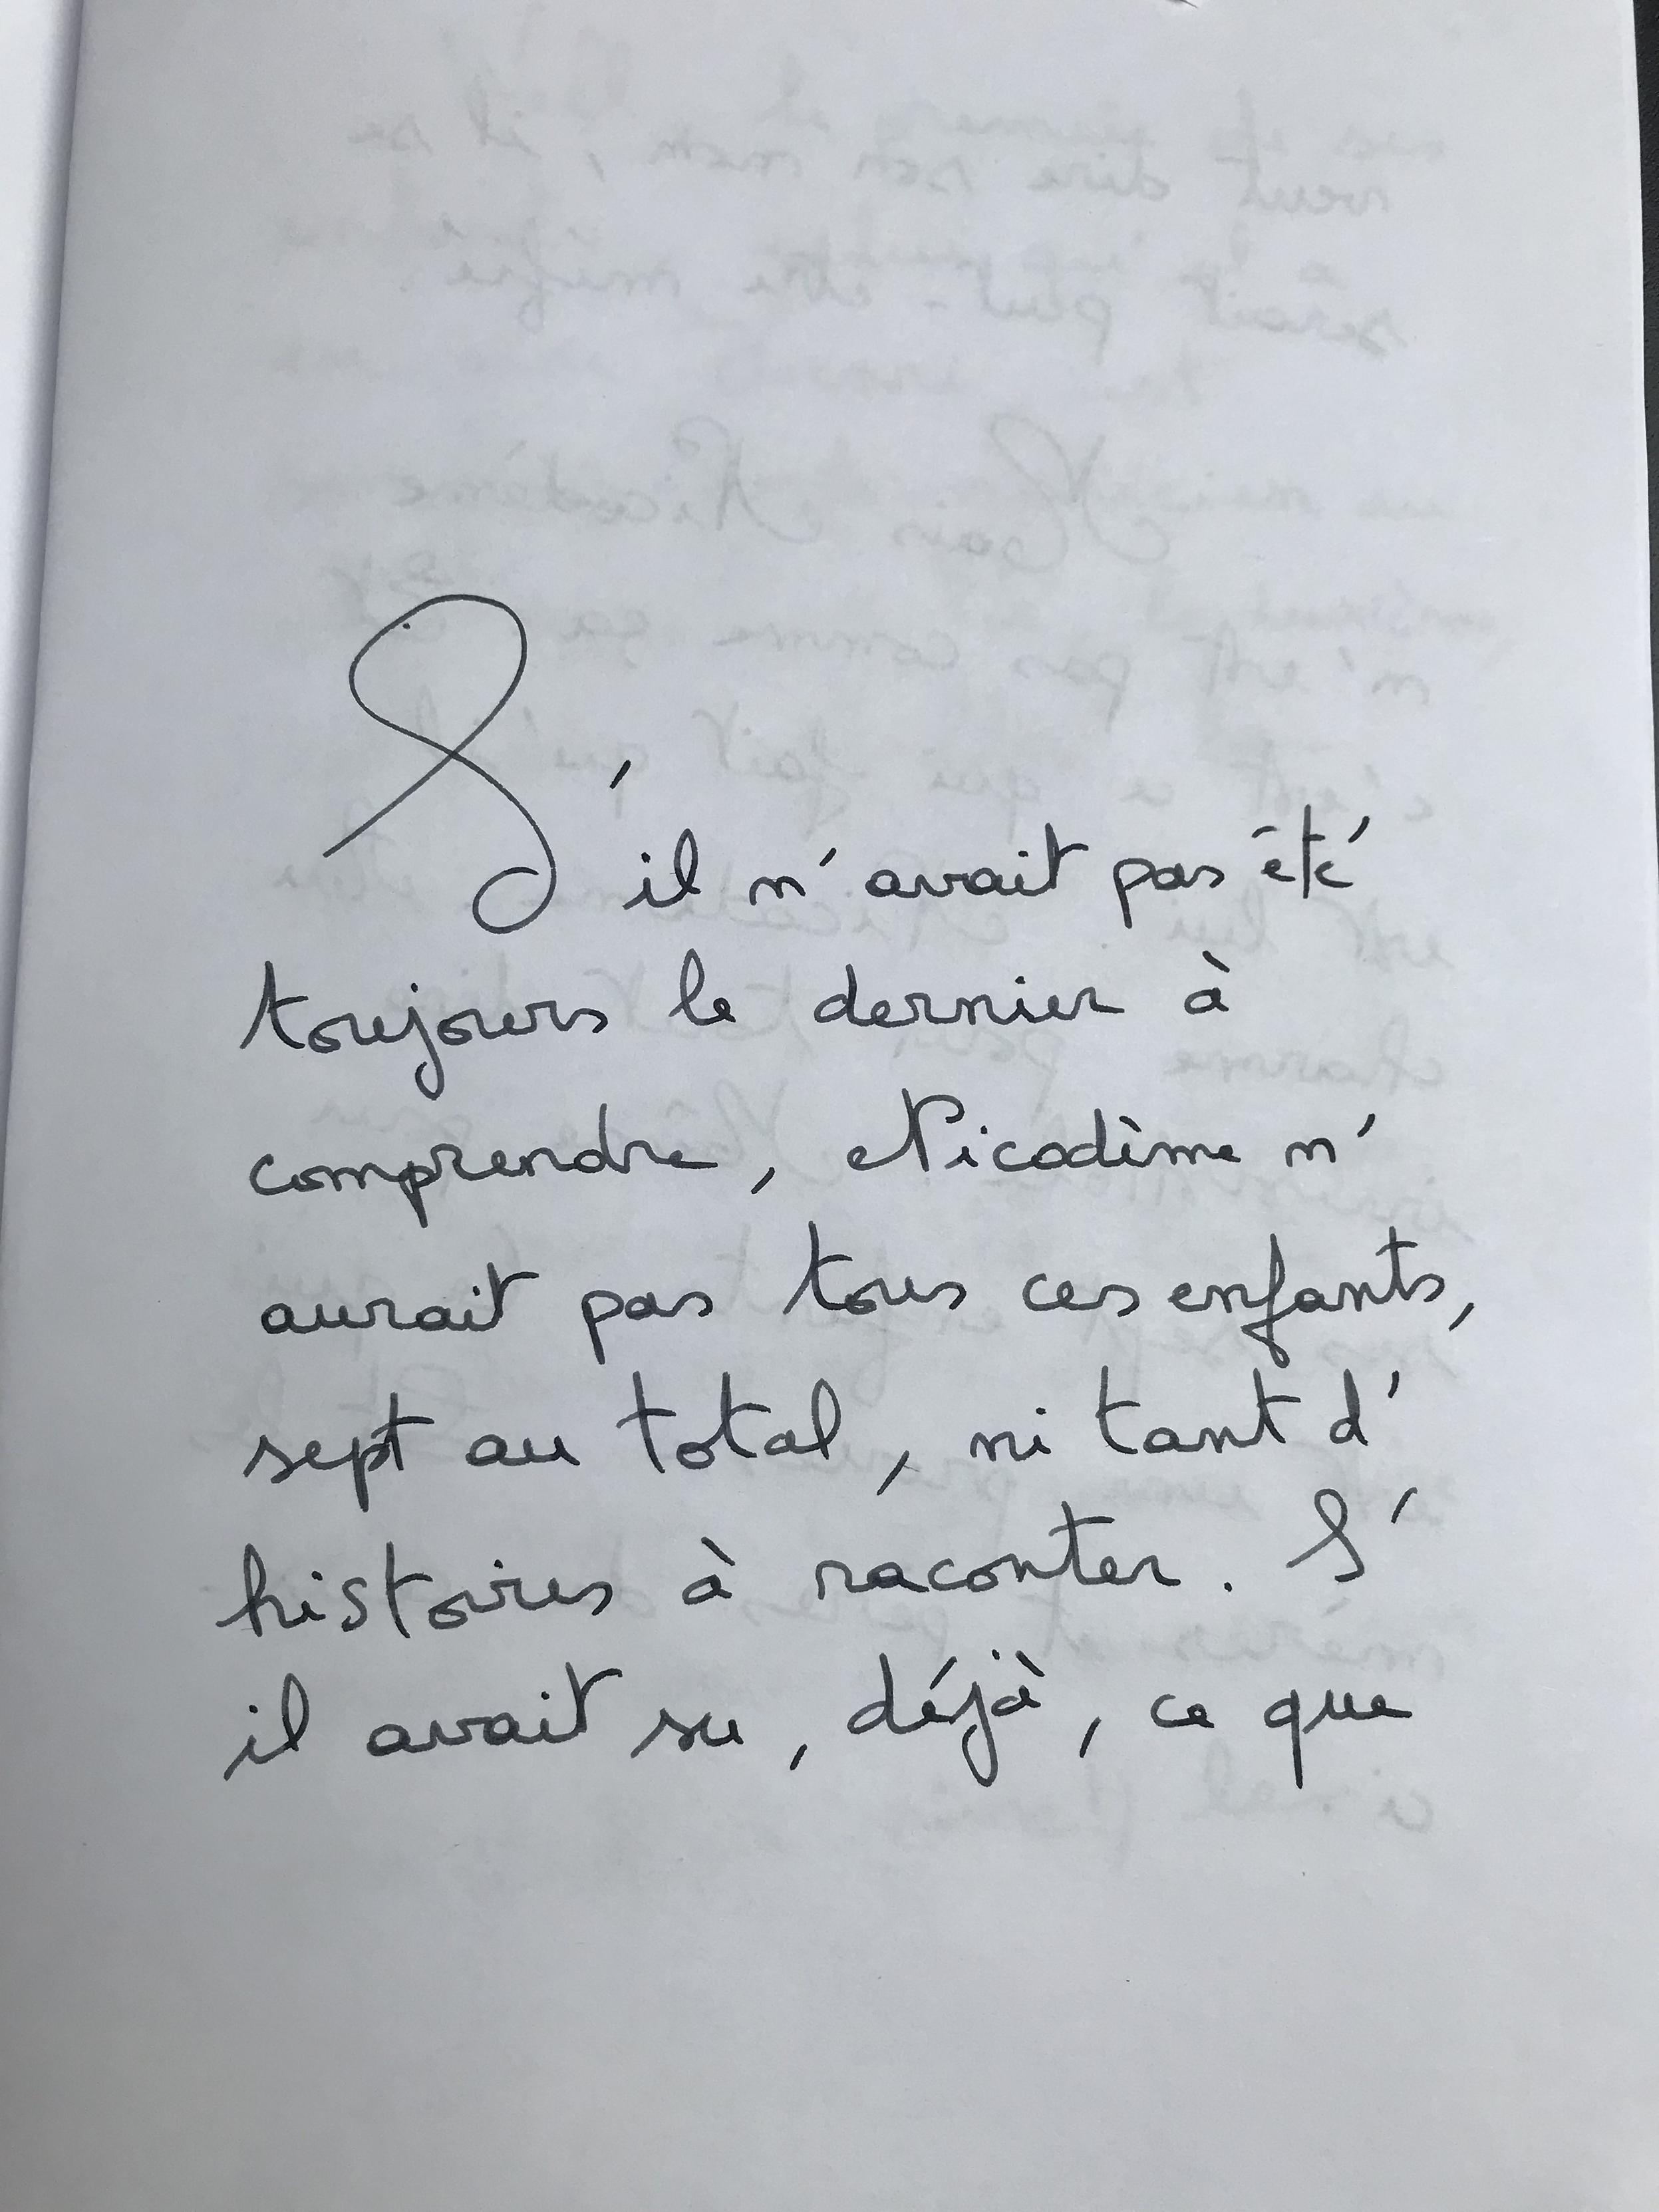 S'il n'avait pas été
toujours le dernier à
comprendre, Nicodème n'
aurait pas tous ces enfants,
sept au total, ni tant d'
histoires à raconter. S'
il avait su, déjà, ce que